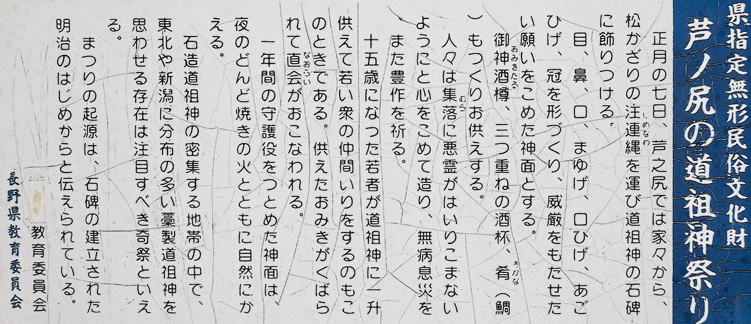 県指定無形民俗文化財
芦ノ尻の道祖神祭り
正月の七日、芦之尻では家々から、
松かざりの注連縄を運び道祖神の石碑
に飾りつける。
目、鼻、口、まゆげ、口ひげ、あご
ひげ、冠を形づくり、威厳をもたせた
い願いをこめた神面とする。
御神酒樽、三つ重ねの酒杯、肴(鯛
)もつくりお供えする。
人々は集落に悪霊がはいりこまない
ようにと心をこめて造り、無病息災を
また豊作を祈る。
十五歳になった若者が道祖神に一升
供えて若い衆の仲間いりをするのもこ
のときである。供えたおみきがくばら
れて直会がおこなわれる。
一年間の守護役をつとめた神面は、
夜のどんど焼きの火とともに自然にか
える。
石造道祖神の密集する地帯の中で、
東北や新潟に分布の多い藁製道祖神を
思わせる存在は注目すべき奇祭といえ
る。
まつりの起源は、石碑の建立された
明治のはじめからと伝えられている。
教育委員会
長野県教育委員会